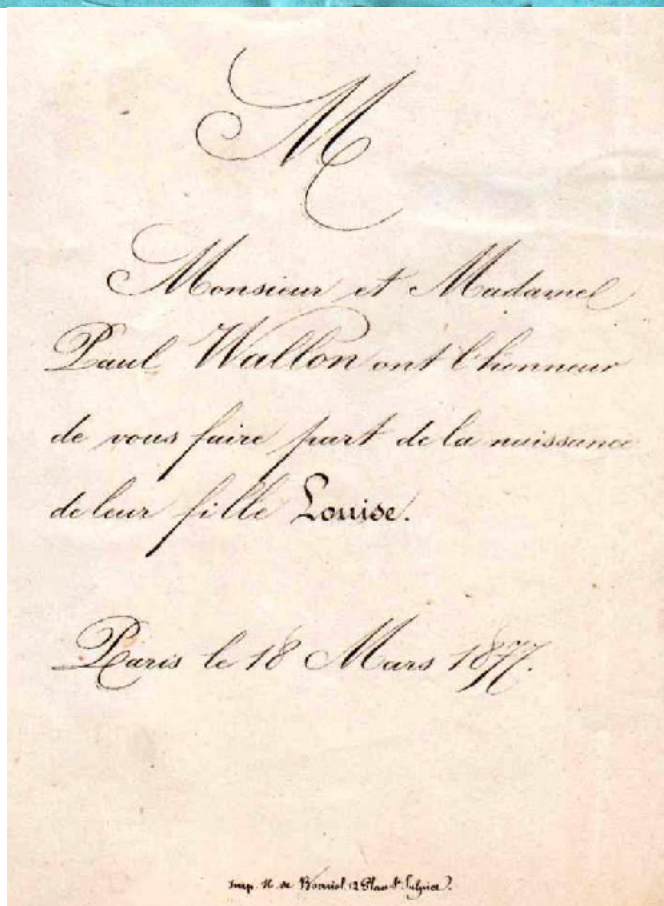 M
Monsieur et Madame
Paul Wallon ont l'honneur
de vous faire part de la naissance
de leur fille Louise.
Paris le 18 Mars 1877.
Imp. H. de 12 Place St. Sulpice